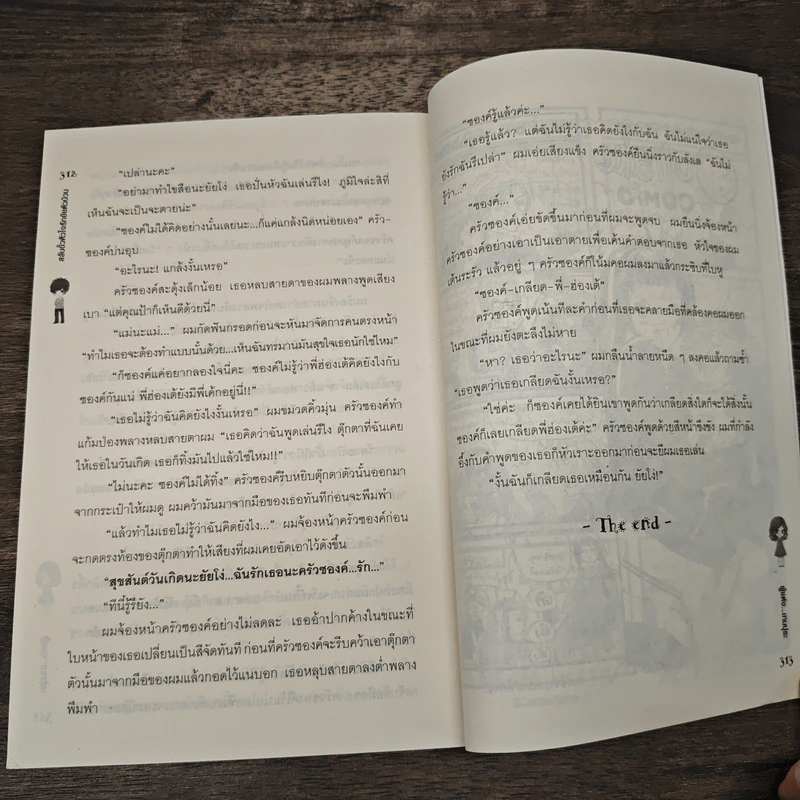 312
สลับขั้วหัวใจรักยัยตัวป่วน
"เปล่านะคะ"
"อย่ามาทำไขสือนะยัยโง่ เธอปั่นหัวฉันเล่นรึไง! ภูมิใจล่ะสิที่
เห็นฉันจะเป็นจะตายน่ะ"
"ซองค์ไม่ได้คิดอย่างนั้นเลยนะ...ก็แค่แกล้งนิดหน่อยเอง" ครัว-
ซองค์บ่นอุบ
"อะไรนะ! แกล้งงั้นเหรอ"
ครัวซองค์สะดุ้งเล็กน้อย เธอหลบสายตาของผมพลางพูดเสียง
เบา "แต่คุณป้าก็เห็นดีด้วยนี่"
"แม่นะแม่..." ผมกัดฟันกรอดก่อนจะหันมาจัดการคนตรงหน้า
"ทำไมเธอจะต้องทำแบบนั้นด้วย...เห็นฉันทรมานมันสุขใจเธอนักใช่ไหม"
"ก็ซองค์แค่อยากลองใจนี่คะ ซองค์ไม่รู้ว่าพี่ฮ่องเต้คิดยังไงกับ
ซองค์กันแน่ พี่ฮ่องเต้ยังมีพี่เค้กอยู่นี่!!"
"เธอไม่รู้ว่าฉันคิดยังไงงั้นเหรอ" ผมขมวดคิ้วมุ่น ครัวซองค์ทำ
แก้มป่องพลางหลบสายตาผม "เธอคิดว่าฉันพูดเล่นรึไง ตุ๊กตาที่ฉันเคย
ให้เธอในวันเกิด เธอก็ทิ้งมันไปแล้วใช่ไหม!!"
"ไม่นะคะ ซองค์ไม่ได้ทิ้ง" ครัวซองค์รีบหยิบตุ๊กตาตัวนั้นออกมา
จากกระเป๋าให้ผมดู ผมคว้ามันมาจากมือของเธอทันทีก่อนจะพึมพำ
"แล้วทำไมเธอไม่รู้ว่าฉันคิดยังไง..." ผมจ้องหน้าครัวซองค์ก่อน
จะกดตรงท้องของตุ๊กตาทำให้เสียงที่ผมเคยอัดเอาไว้ดังขึ้น
"สุขสันต์วันเกิดนะยัยโง่...ฉันรักเธอนะครัวซองค์...รัก..."
"ทีนี้รู้รึยัง..."
ผมจ้องหน้าครัวซองค์อย่างไม่ลดละ เธออ้าปากค้างในขณะที่
ใบหน้าของเธอเปลี่ยนเป็นสีจัดทันที ก่อนที่ครัวซองค์จะรีบคว้าเอาตุ๊กตา
ตัวนั้นมาจากมือของผมแล้วกอดไว้แนบอก เธอหลุบสายตาลงต่ำพลาง
พึมพำ
"ซองค์รู้แล้วค่ะ..."
"เธอรู้แล้ว? แต่ฉันไม่รู้ว่าเธอคิดยังไงกับฉัน ฉันไม่แน่ใจว่าเธอ
ยังรักฉันรึเปล่า" ผมเอ่ยเสียงแข็ง ครัวซองค์ยืนนิ่งราวกับลังเล "ฉันไม่
รู้ว่า..."
"ซองค์..."
ครัวซองค์เอ่ยขัดขึ้นมาก่อนที่ผมจะพูดจบ ผมยืนนิ่งจ้องหน้า
ครัวซองค์อย่างเอาเป็นเอาตายเพื่อเค้นคำตอบจากเธอ หัวใจของผม
เต้นระรัว แล้วอยู่ ๆ ครัวซองค์ก็โน้มคอผมลงมาแล้วกระซิบที่ใบหู
"ซองค์-เกลียด-พี่-ฮ่องเต้"
ครัวซองค์พูดเน้นทีละคำก่อนที่เธอจะคลายมือที่คล้องคอผมออก
ในขณะที่ผมยังตะลึงไม่หาย
"หา? เธอว่าอะไรนะ" ผมกลืนน้ำลายหนืด ๆ ลงคอแล้วถามซ้ำ
"เธอพูดว่าเธอเกลียดฉันงั้นเหรอ?"
"ใช่ค่ะ ก็ซองค์เคยได้ยินเขาพูดกันว่าเกลียดสิ่งใดก็จะได้สิ่งนั้น
ซองค์ก็เลยเกลียดพี่ฮ่องเต้ค่ะ" ครัวซองค์พูดด้วยสีหน้าขึงขัง ผมที่กำลัง
อึ้งกับคำพูดของเธอก็หัวเราะออกมาก่อนจะยีผมเธอเล่น
"งั้นฉันก็เกลียดเธอเหมือนกัน ยัยโง่!"
- The end -
313